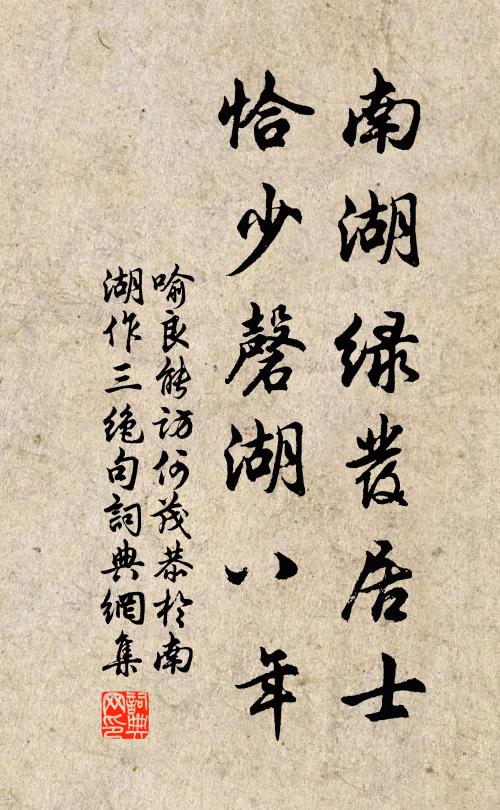 南湖绿发居士
恰少磬湖八年
喻良能访何茂恭於南
湖作三绝句詞典網集
詞典网印